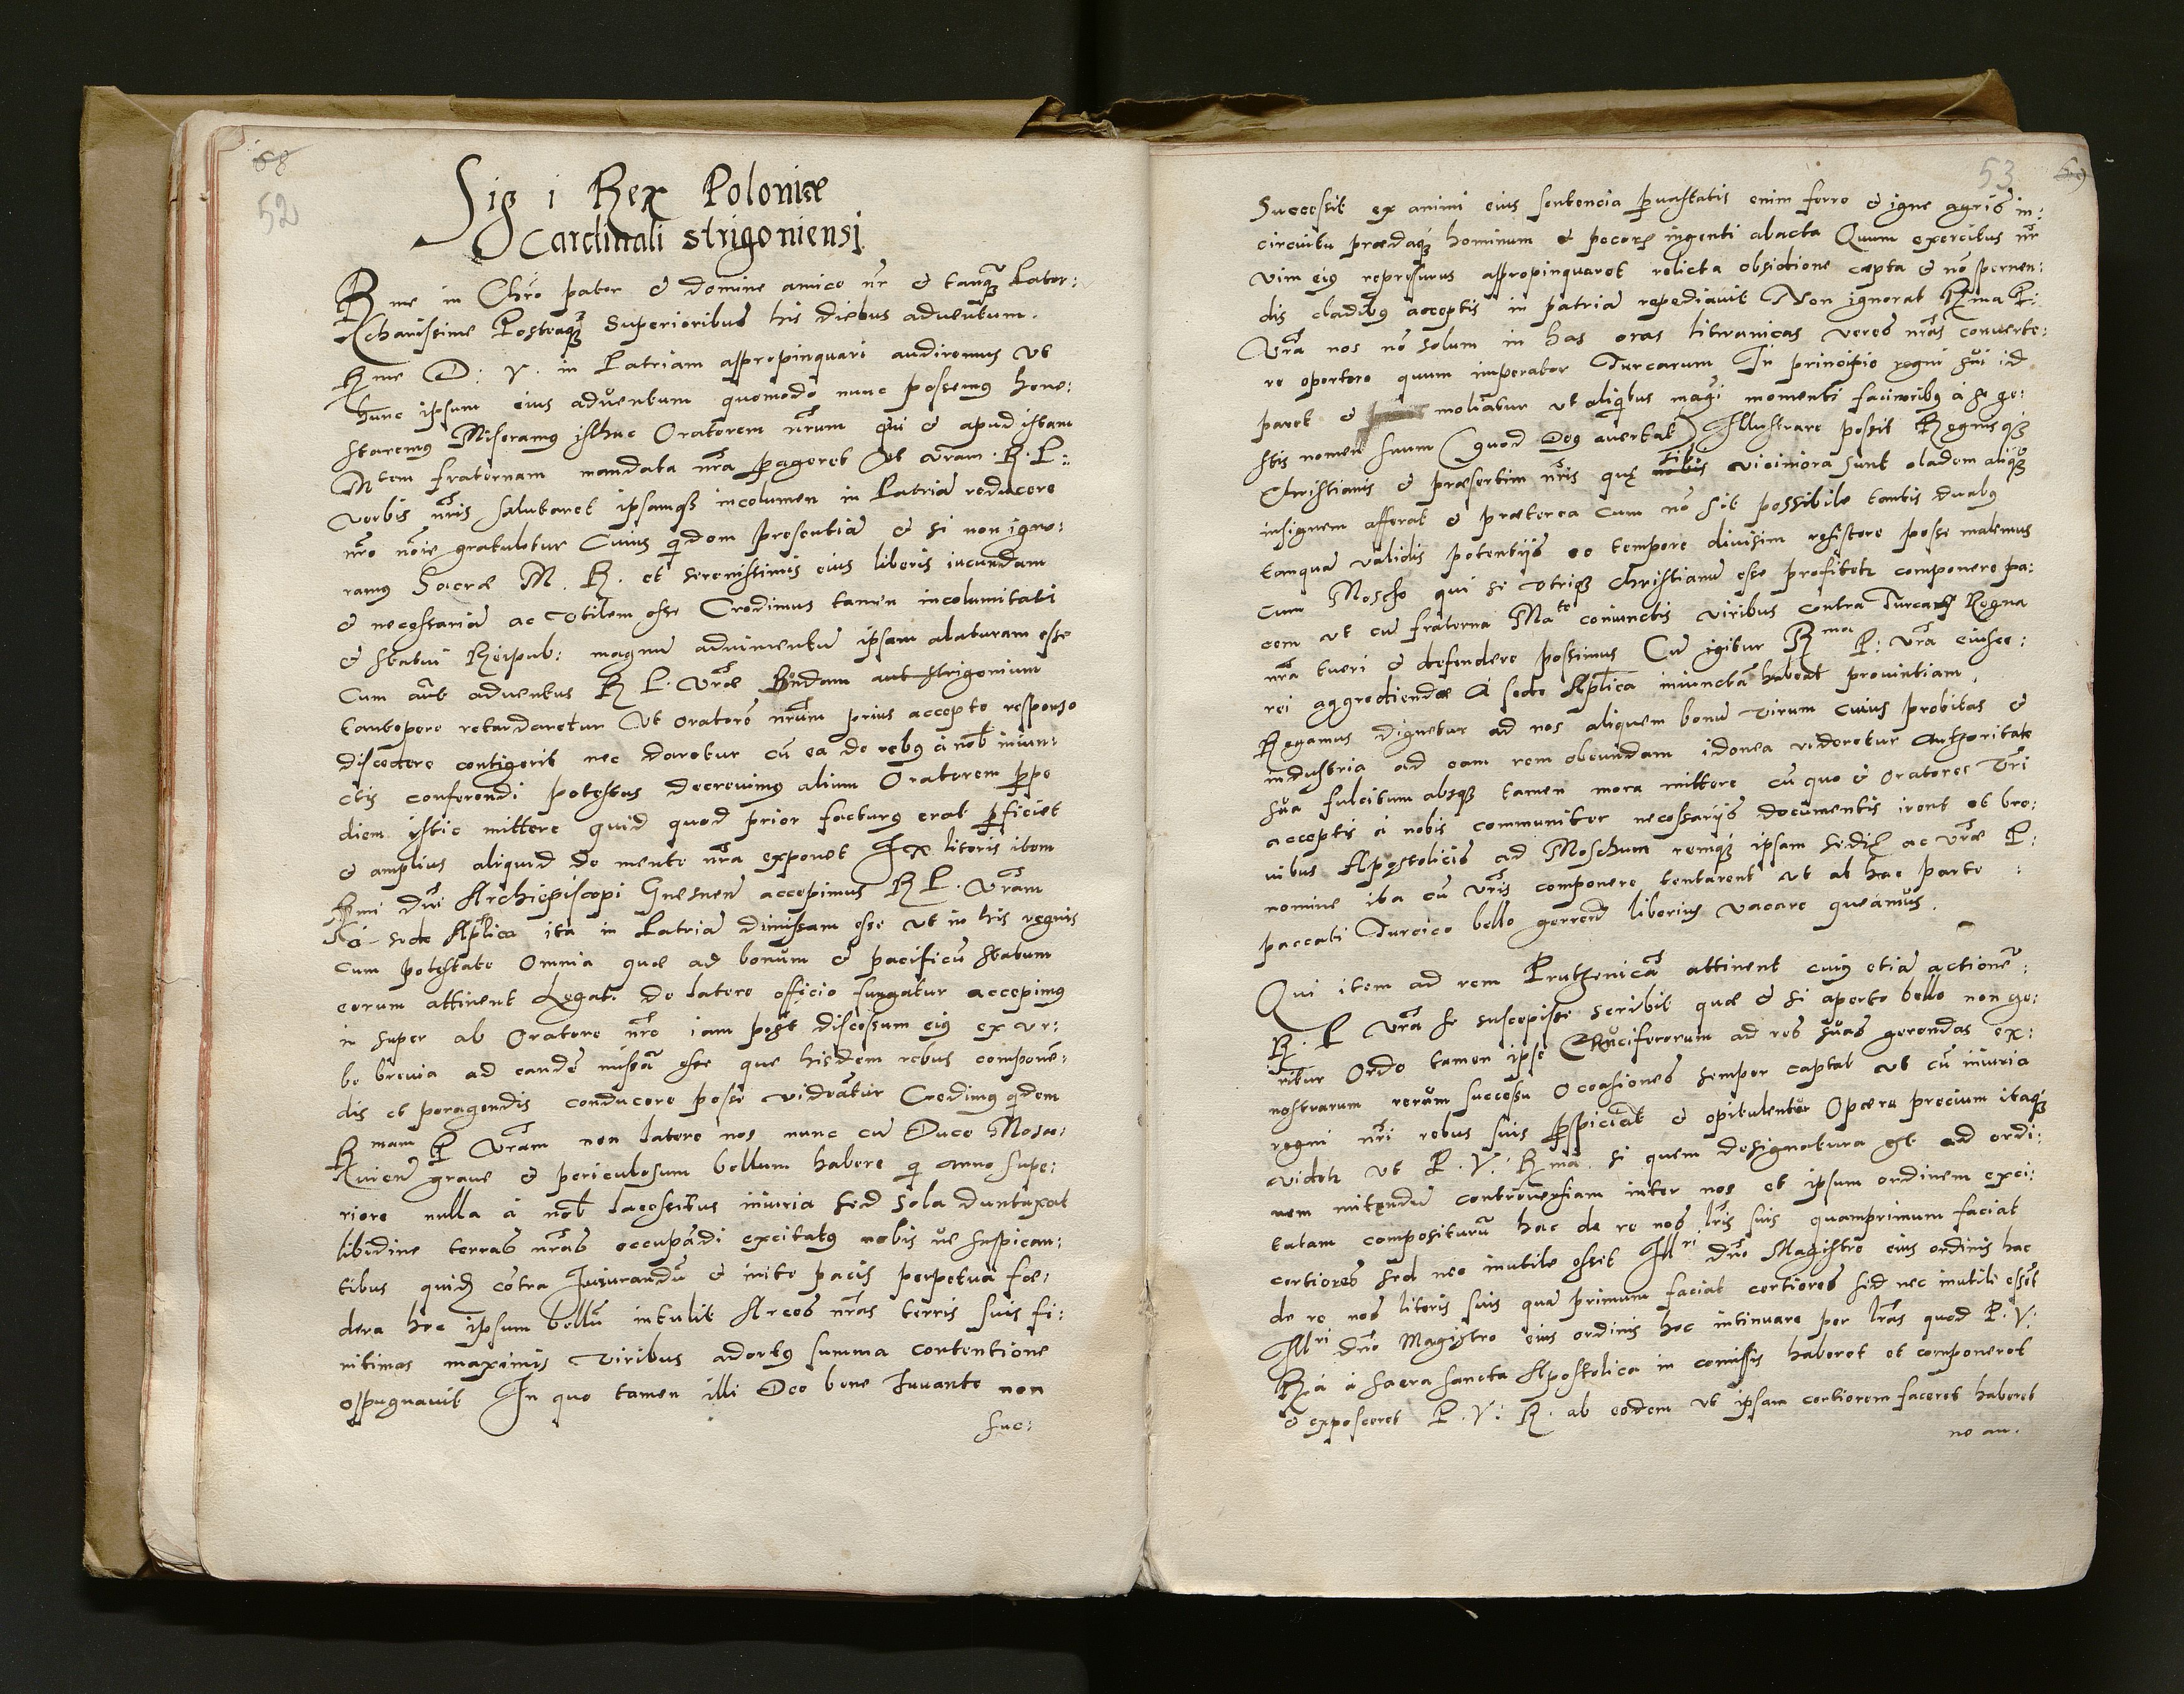 68
52
Sig i Rex Poloniæ
Cardinali strigoniensi
Rme in Chro pater & domine amice nr & tanq̃ frater:
charissime Posteaq̃ Superioribus his diebus aduentum.
Rme D: V. in Patriam appropinquari audiremus vt
hunc ipsum eius aduentum quomodo nunc possemus hone:
staremus Miseramus isthuc Oratorem nrum qui & apud istam
Mtem fraternam mandata nra pageret et vram. R. P.:
verbis nris salutaret ipsamq̃ incolumen in Patria reducere
nro noie gratuletur Cuius qidem presentia & si non igno:
ramus Sacræ M. R. et serenissimis eius liberis iucundam
& necessaria ac vtilem esse Credimus tamen incolumitati
& statui Reipub: magnu adiumentu ipsam alaturam esse
Cum aut aduentus R P. vræ Budam aut strigonium
tantopere retardaretur vt oratore nrum prius accepto responso
discedere contigerit nec daretur cu ea de rebus a nob iniun:
ctis conferendi potestas decreuimus alium Oratorem ppe
diem istic mittere quid quod prior facturus erat pficiet
& amplius aliquid de mente nra exponet Ex literis item
Rmi dni Archiepiscopi Gnesnen accepimus R P. vram
a sede Aplica ita in Patria dimissam esse vt in his regnis
cum potestate Omnia quæ ad bonum & pacificu statum
eorum attinent Legati de latere officio fungatur accepimus
in super ab Oratore nro iam post discessum eius ex vr:
be breuia ad eande missa esse que hisdem rebus compone:
dis et peragendis conducere posse videatur Credimus qidem
Rmam P vram non latere nos nunc cu Duce Mosco:
uien graue & periculosum bellum habere q anno supe:
riore nulla a nob lacessitus iniuria sed sola duntaxat
libidine terras nras occupadi excitatus nobis ne suspican:
tibus quid cotra Jusiurandu & inite pacis perpetua foe:
dera hoc ipsum bellu intulit Arces nras terris suis fi:
nitimas maximis viribus adortus summa contentione
oppugnauit In quo tamen illi Deo bene Iuuante non
suc:
53
69
Successit ex animi eius sententia puastatis enim ferro & igne agris in:
circuitu prædaq̃ hominum & pecorũ ingenti abacta Quum exercitus nr
vim eius represurus appropinquaret relicta obsidione cæpta & no spernen:
dis cladibus acceptis in patria repediauit Non ignorat Rma P:
Vra nos no solum in has oras lituanicas veres nras conuerte:
re oportere quum imperator Turcarum In principio regni sui id
paret & moliatur vt aliqibus magi momenti facinoribus a se ge:
stis nomen suum (quod Deus auertat) Illustrare possit Regnisq̃
Christianis & præsertim nris quę nobis sibi viciniora sunt cladem aliq̃
insignem afferat & præterea cum no sit possibile tantis duabus
tanqua validis potentijs eo tempore diuisim resistere posse malemus
cum Moscho qui se vtriq̃ Christianu esse profitetr componere pa:
cem vt cu fraterna Mate coniunctis viribus contra Turcas Regna
nra tueri & defendere possimus Cu igitur Rma P: vra eiusce:
rei aggrediendæ A sede Aplica iniuncta habeat prouintiam.
Rogamus dignetur ad nos aliquem bonu virum cuius probitas &
industria ad eam rem obeundam idonea videretur authoritate
sua fulcitum absq̃ tamen mora mittere cu quo & oratores vri
acceptis a nobis communiter necessarijs documentis irent et bre:
uibus Apostolicis ad Moschum remq̃ ipsam sedis ac vræ P:
nomine ita cu vris componere tentarent vt ab hac parte :
paccati Turcico bello gerend liberius vacare queamus.
Qui item ad rem Prutenica attinent cuius etia actione:
R. P vra se suscepisse scribit quæ & si aperto bello non ge:
ritur Ordo tamen ipse Cruciferorum ad res suas gerendas ex:
nostrarum rerum successu Occasiones semper captat vt cu iniuria
regni nri rebus suis pspiciat & opitulentur Opere precium itaq̃
videtr vt P. V. Rma. si quem designatura est ad ordi:
nem mitendu controuersiam inter nos et ipsum ordinem exci:
tatam compositurũ hac de re nos lris suis quamprimum faciat
certiores sed nec inutile esset Illri dno Magistro eius ordinis hac
de re nos literis suis qua primum faciat certiores sed nec inutile esset
Illri dno Magistro eius ordinis hoc intinuare per lras quod P. V:
Ra a sacra sancta Apostolica in comissis haberet et componeret
& exposceret P. V: R. ab eodem vt ipsam certiorem faceret haberet
ne an.